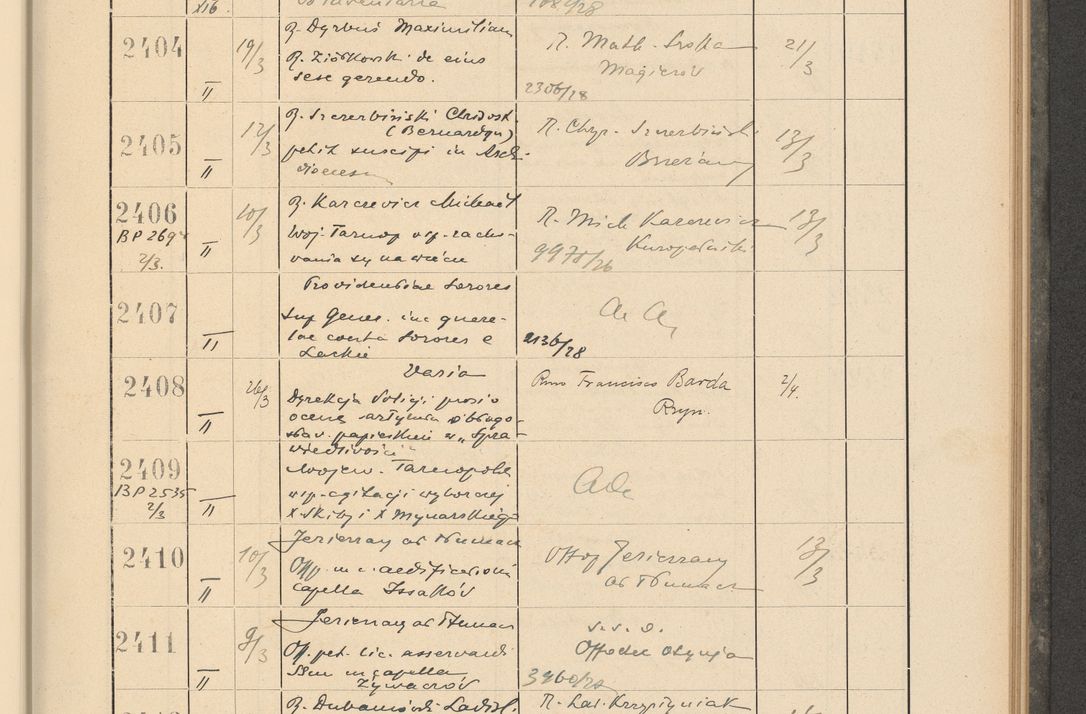 XIb.
2404
19/3
II
R. Dyrbuś Maximilian
R. Ziółkowski de eius
sese gerendo.
R. Math.
Magierów
2306/28
21/3
2405
12/3
II
R. Szczerbiński Chrisost.
(Bernardyn)
petit suscipi in Archi-
diocesim
R. Chryz. Szczerbiński
Brzeżany
13/3
2406
BP 2694
2/3.
10/3
II
R. Karcewicz Michael
Woj. Tarnop wsp. zacho-
wania się na wiecu
R. Mich Karcewicz
9978/26
13/3
2407
II
Providentiae Sorores
Sup Gener. inc quere-
lae contra Sorores e
Laskie
a. a.
2136/28
2408
26/3
II
Varia
Dyrekcja Policji prosi o
ocenę artykułu o błogo-
sław. papieskim w „Spra-
wiedliwości"
Rmo Francisco Barda
Rzym.
2/4.
2409
BP 2535
2/3
II
Wojew. Tarnopolski
wsp. agitacji wyborczej
X. Skiby i X Mynarskiego
Ada
2410
10/3
II
Jezierzany ad Tłumacz
Off. m. c. aedificationi
capella Issaków
Offoy Jezierzany
ad Tłumacz
13/3
2411
9/3
II
Jezierzany ad Tłumacz
Off. pet. lic. asservandi
SSm in capella
Żywaczów
s. s. o.
Offodec Otynja
R. Dubanowski Ladisl.
R. Lad. Krzyżyniak